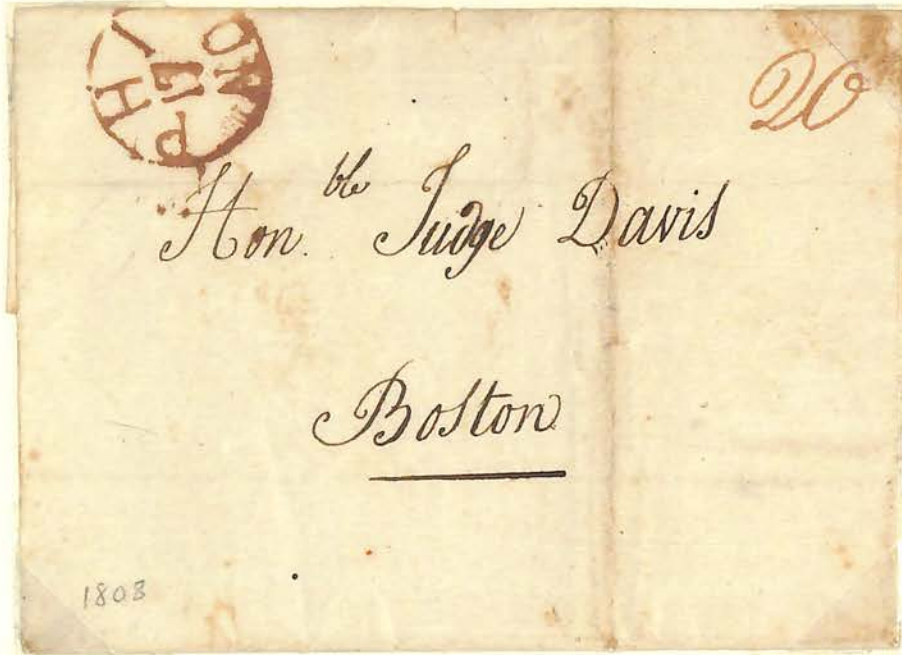 20
Hon.ble Judge Davis
Boston
1803